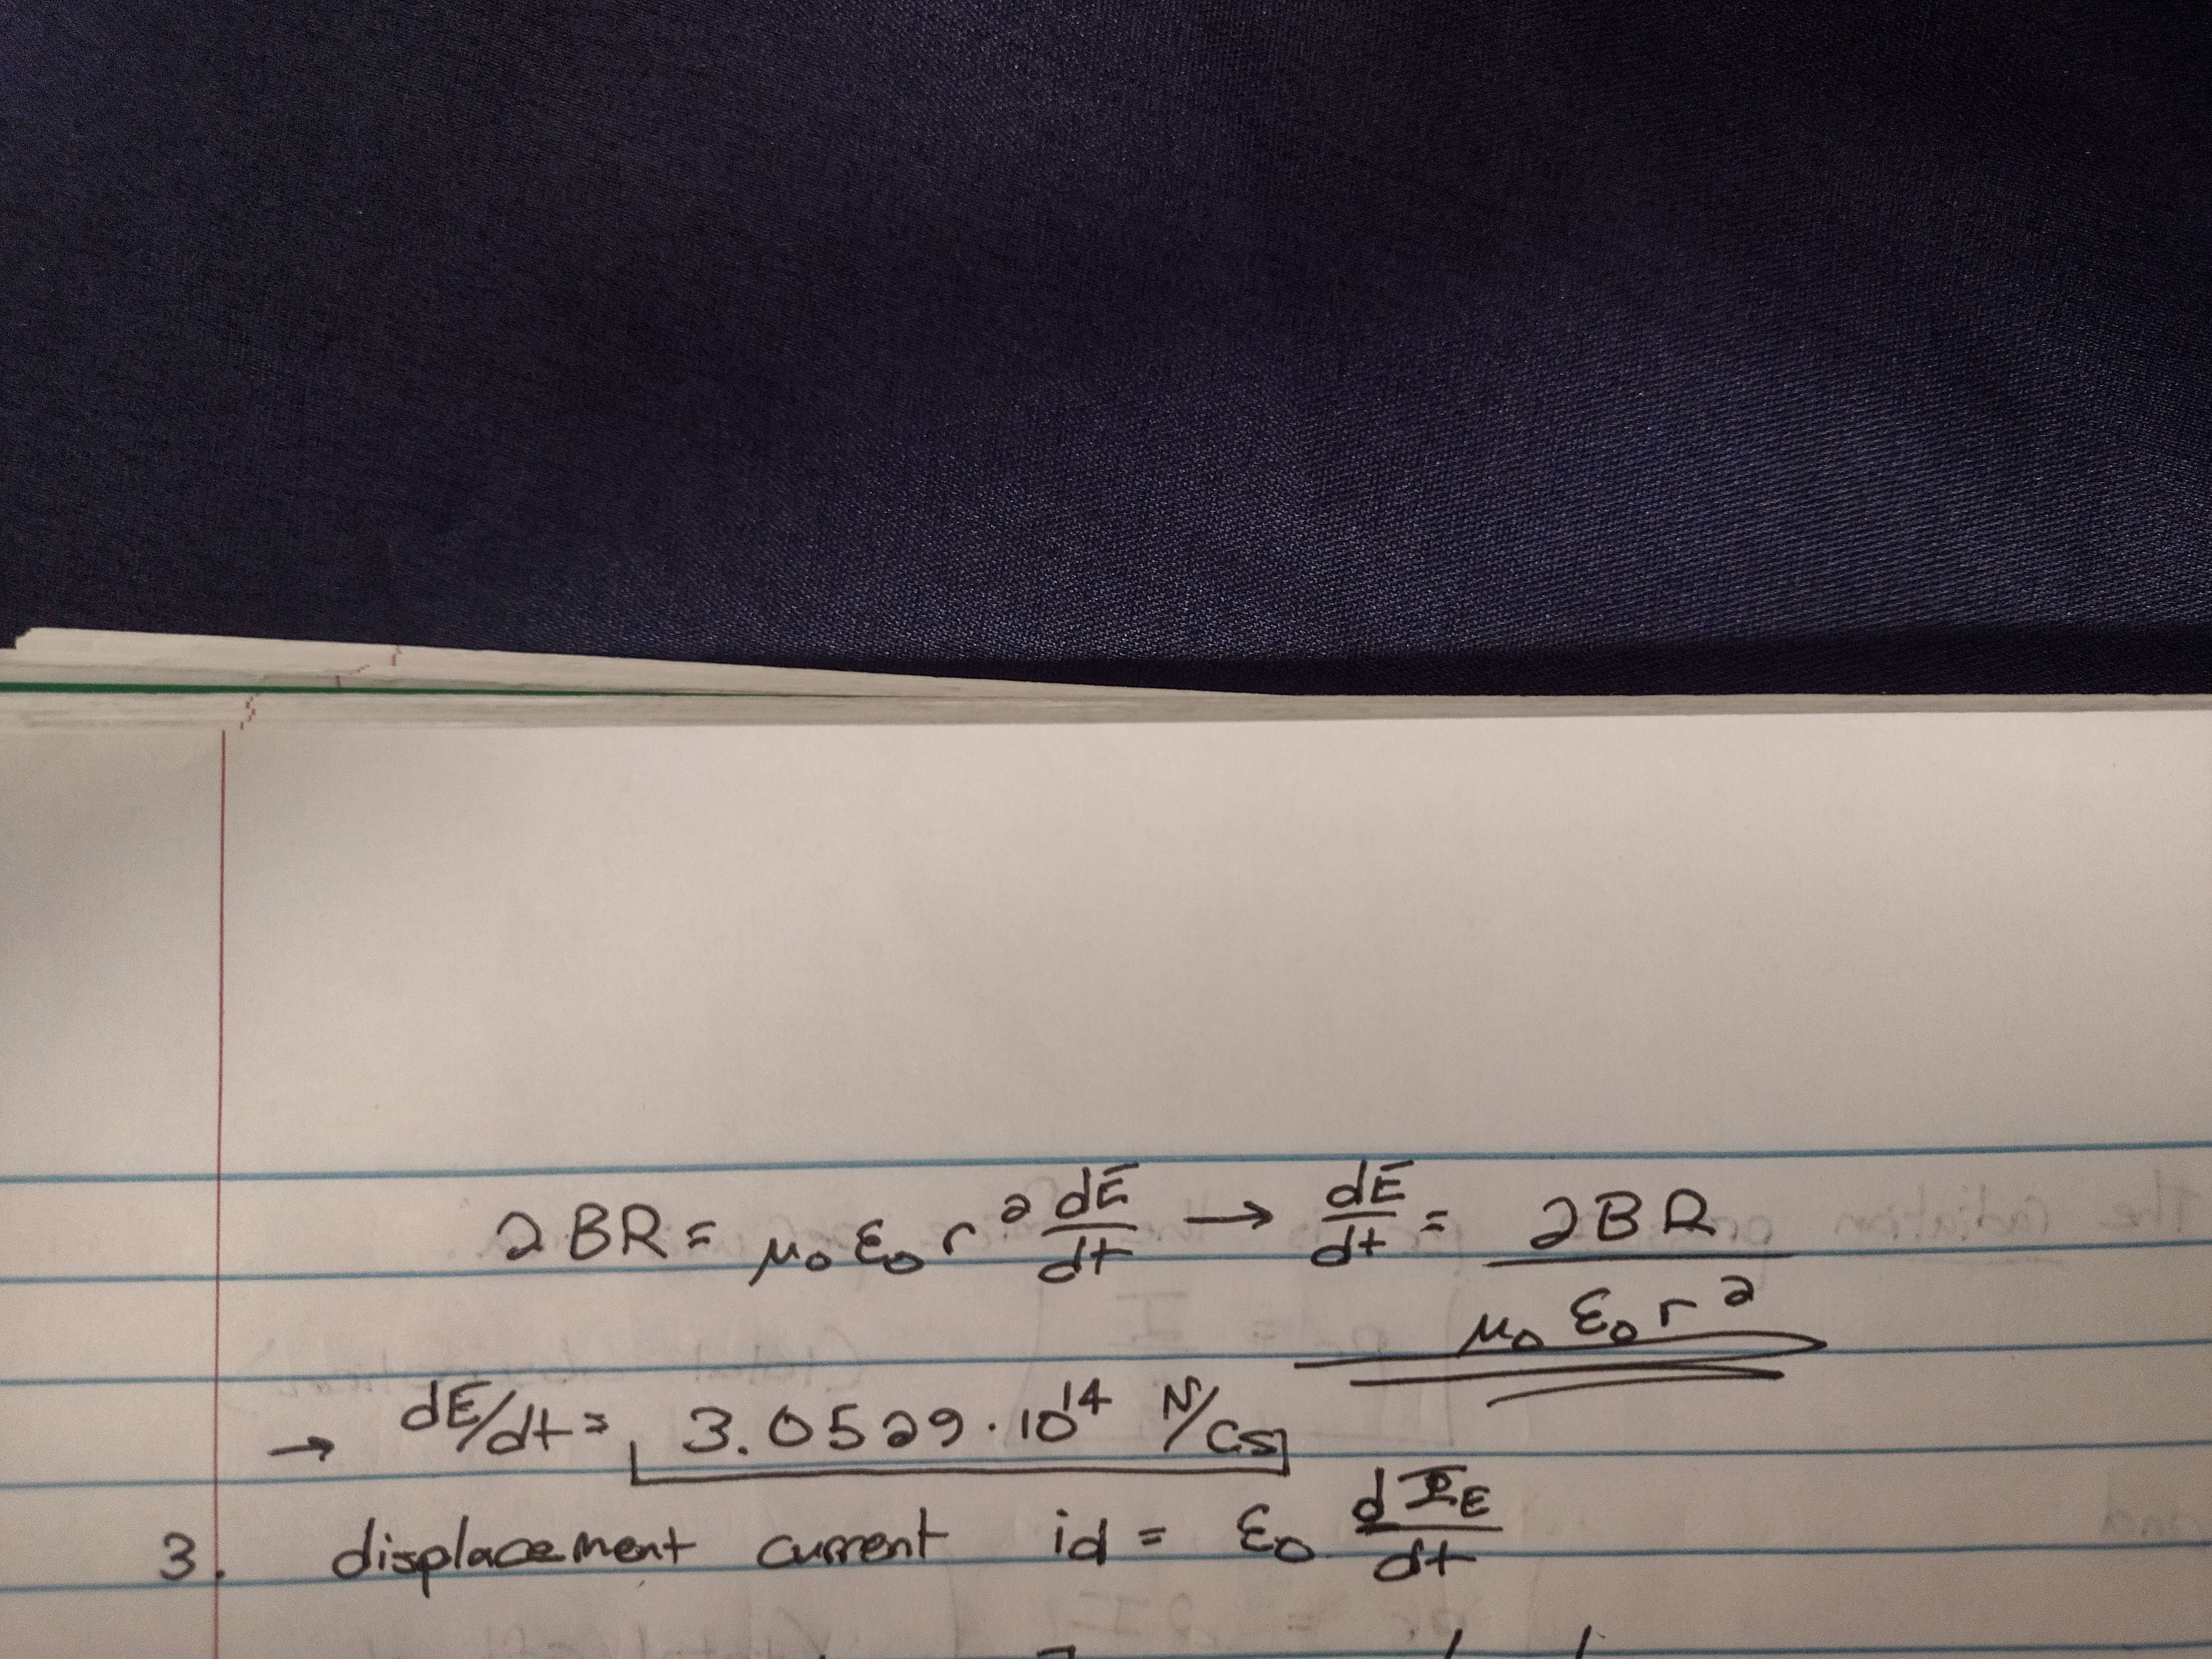 2BR = μ₀ ε₀ r² dE/dt → dE/dt = 2BR / μ₀ ε₀ r²
→ dE/dt = 3.0529 · 10¹⁴ N/Cs
3. displacement current id = ε₀ dΦE/dt